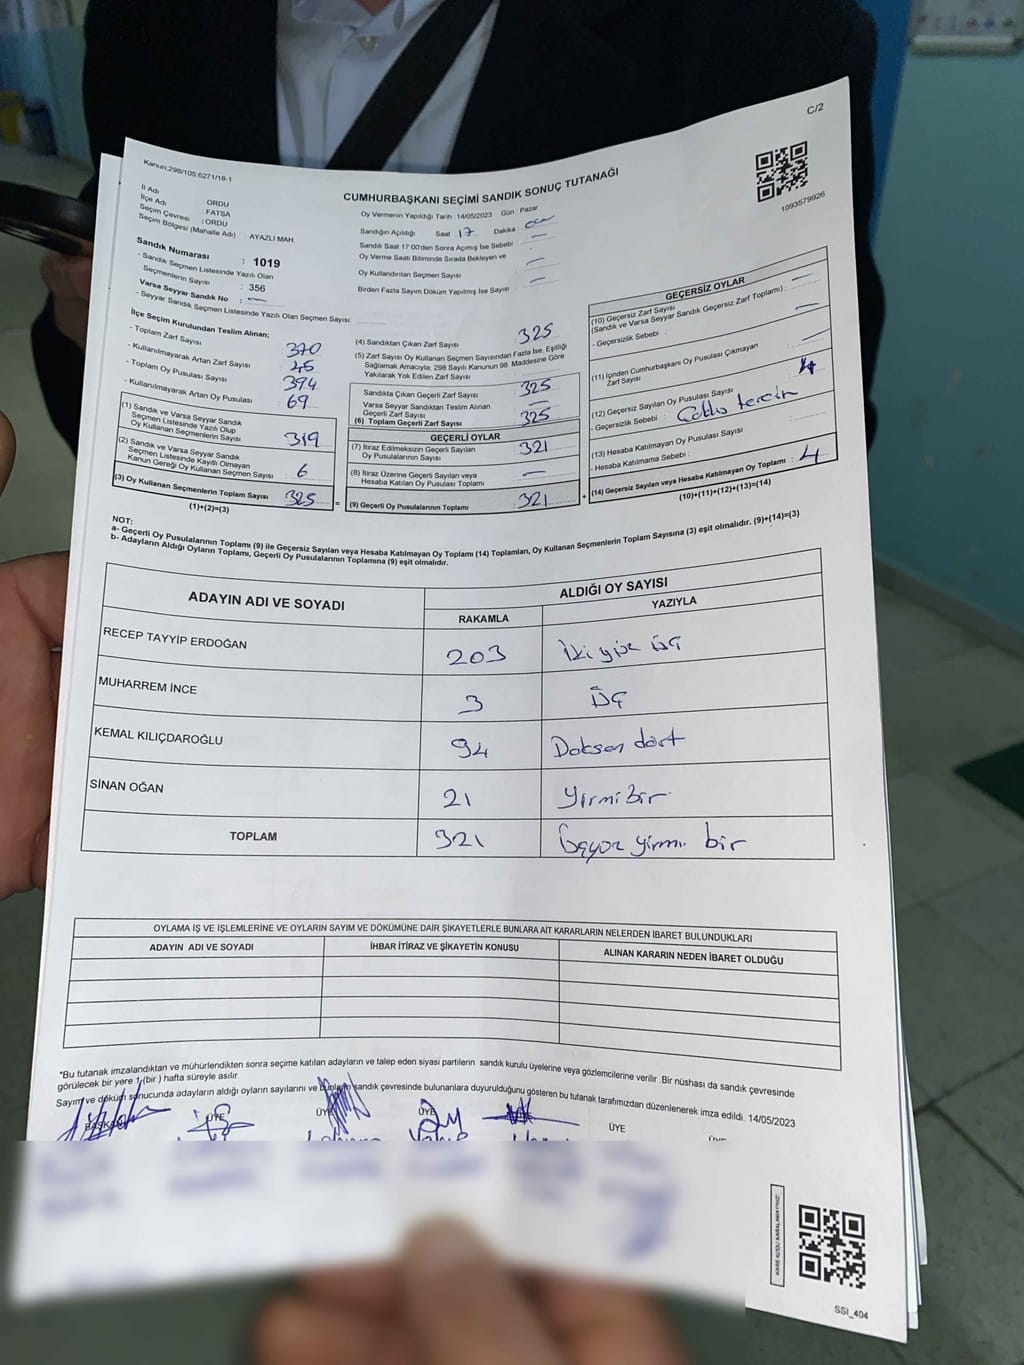 C/2
Kanun:298/105.6271/18-1
CUMHURBAŞKANI SEÇİMİ SANDIK SONUÇ TUTANAĞI
1093579926
İl Adı : ORDU
İlçe Adı : FATSA
Seçim Çevresi : ORDU
Seçim Bölgesi (Mahalle Adı) : AYAZLI MAH.
Sandık Numarası : 1019
- Sandık Seçmen Listesinde Yazılı Olan
Seçmenlerin Sayısı : 356
Varsa Seyyar Sandık No : —
- Seyyar Sandık Seçmen Listesinde Yazılı Olan Seçmen Sayısı
Oy Vermenin Yapıldığı Tarih :14/05/2023 Gün : Pazar
Sandığın Açıldığı Saat 17 Dakika
Sandık Saat 17:00'den Sonra Açımış İse Sebebi : —
Oy Verme Saati Bitiminde Sırada Bekleyen ve
Oy Kullandırılan Seçmen Sayısı : —
Birden Fazla Sayım Döküm Yapılmış İse Sayısı : —
İlçe Seçim Kurulundan Teslim Alınan;
- Toplam Zarf Sayısı : 370
- Kullanılmayarak Artan Zarf Sayısı : 45
- Toplam Oy Pusulası Sayısı : 394
- Kullanılmayarak Artan Oy Pusulası : 69
(1) Sandık ve Varsa Seyyar Sandık
Seçmen Listesinde Yazılı Olup
Oy Kullanan Seçmenlerin Sayısı : 319
(2) Sandık ve Varsa Seyyar Sandık
Seçmen Listesinde Kayıtlı Olmayan
Kanun Gereği Oy Kullanan Seçmen Sayısı : 6
(3) Oy Kullanan Seçmenlerin Toplam Sayısı : 325
(1)+(2)=(3)
(4) Sandıktan Çıkan Zarf Sayısı : 325
(5) Zarf Sayısı Oy Kullanan Seçmen Sayısından Fazla İse, Eşitliği
Sağlamak Amacıyla; 298 Sayılı Kanunun 98. Maddesine Göre
Yakılarak Yok Edilen Zarf Sayısı
Sandıkta Çıkan Geçerli Zarf Sayısı : 325
Varsa Seyyar Sandıktan Teslim Alınan
Geçerli Zarf Sayısı : —
(6) Toplam Geçerli Zarf Sayısı : 325
GEÇERLİ OYLAR
(7) İtiraz Edilmeksizin Geçerli Sayılan
Oy Pusulasının Sayısı : 321
(8) İtiraz Üzerine Geçerli Sayılan veya
Hesaba Katılan Oy Pusulası Toplamı : —
(9) Geçerli Oy Pusulalarının Toplamı : 321
GEÇERSİZ OYLAR
(10) Geçersiz Zarf Sayısı
(Sandık ve Varsa Seyyar Sandık Geçersiz Zarf Toplamı) : —
- Geçersizlik Sebebi : —
(11) İçinden Cumhurbaşkanı Oy Pusulası Çıkmayan
Zarf Sayısı : —
(12) Geçersiz Sayılan Oy Pusulası Sayısı : 4
- Geçersizlik Sebebi : Çoklu tercih
(13) Hesaba Katılmayan Oy Pusulası Sayısı :
- Hesaba Katılmama Sebebi :
(14) Geçersiz Sayılan veya Hesaba Katılmayan Oy Toplamı : 4
(10)+(11)+(12)+(13)=(14)
NOT:
a- Geçerli Oy Pusulalarının Toplamı (9) ile Geçersiz Sayılan veya Hesaba Katılmayan Oy Toplamı (14) Toplamları, Oy Kullanan Seçmenlerin Toplam Sayısına (3) eşit olmalıdır. (9)+(14)=(3)
b- Adayların Aldığı Oyların Toplamı, Geçerli Oy Pusulalarının Toplamına (9) eşit olmalıdır.
ADAYIN ADI VE SOYADI ALDIĞI OY SAYISI
RAKAMLA YAZIYLA
RECEP TAYYİP ERDOĞAN 203 İkiyüz üç
MUHARREM İNCE 3 Üç
KEMAL KILIÇDAROĞLU 94 Doksan dört
SİNAN OĞAN 21 Yirmibir
TOPLAM 321 Üçyüz yirmi bir
OYLAMA İŞ VE İŞLEMLERİNE VE OYLARIN SAYIM VE DÖKÜMÜNE DAİR ŞİKAYETLERLE BUNLARA AİT KARARLARIN NELERDEN İBARET BULUNDUKLARI
ADAYIN ADI VE SOYADI İHBAR İTİRAZ VE ŞİKAYETİN KONUSU ALINAN KARARIN NEDEN İBARET OLDUĞU
*Bu tutanak imzalandıktan ve mühürlendikten sonra seçime katılan adayların ve talep eden siyasi partilerin sandık kurulu üyelerine veya gözlemcilerine verilir .Bir nüshası da sandık çevresinde
görülecek bir yere 1 (bir ) hafta süreyle asılır.
Sayım ve döküm sonucunda adayların aldığı oyların sayılarını ve bunların sandık çevresinde bulunanlara duyurulduğunu gösteren bu tutanak tarafımızdan düzenlenerek imza edildi. 14/05/2023
BAŞKAN ÜYE ÜYE ÜYE ÜYE
KARE KODU KARALAMAYINIZ!
SSI_404